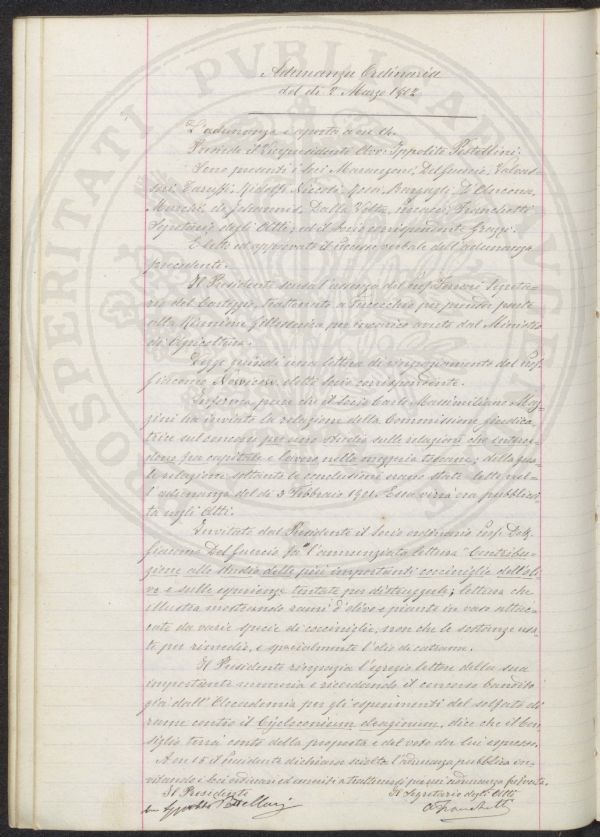 Adunanza Ordinaria
del dì 2 Marzo 1902
L'adunanza è aperta a ore 14.
Presiede il Vicepresidente Avv. Ippolito Pestellini;
Sono presenti i soci Marangoni, Del Guercio, Valvas-
sori, Taruffi, Ridolfi, Niccoli, Bargagli, D'Ancona,
Marchi, de Johannis, Dalla Volta, Franchetti
Segretario degli Atti, ed il Socio corrispondente Grazzi.
È letto ed approvato il processo verbale dell'adunanza
precedente.
Il Presidente scusa l'assenza del prof. Ferrari Segreta-
rio del Carteggio, trattenuto a Fucecchio per prender parte
alla Riunione fillosserica per incarico avuto dal Ministro
di Agricoltura.
Legge quindi una lettera di ringraziamento del prof.
Giacomo eletto socio corrispondente.
Informa pure che il socio Carlo Massimiliano Maz-
zini ha inviato la relazione della Commissione giudica-
trice sul concorso per uno studio sulle relazioni che interce-
dono fra capitale e lavoro nella mezzeria toscana; della qua-
le relazione soltanto le conclusioni erano state lette nel-
l'adunanza del dì 3 Febbraio 1901. Essa verrà ora pubblica-
ta negli Atti.
Invitato dal Presidente il Socio ordinario prof. Dott.
Giacomo Del Guercio fa l'annunziata lettura "Contribu-
zione allo studio delle più importanti cocciniglie dell'oli-
vo e sulle esperienze tentate per distruggerle"; lettura che
illustra mostrando rami d'olivo e piante in vaso attac-
cate da varie specie di cocciniglie, non che le sostanze usa-
te per rimedio, e specialmente l'olio di catrame.
Il Presidente ringrazia l'egregio lettore della sua
importante memoria e ricordando il concorso bandito
già dall'Accademia per gli esperimenti del solfato di
rame contro il Cycloconium oleaginum, dice che il Con-
siglio terrà conto della proposta e del voto da lui espresso.
A ore 15 il Presidente dichiara sciolta l'adunanza pubblica in-
vitando i soci ordinari ed emeriti a trattenersi per un'adunanza privata.
Il Presidente Il Segretario degli Atti
Ippolito Pestellini A Franchetti
PROSPERITATI PVBLICAE AVGENDAE